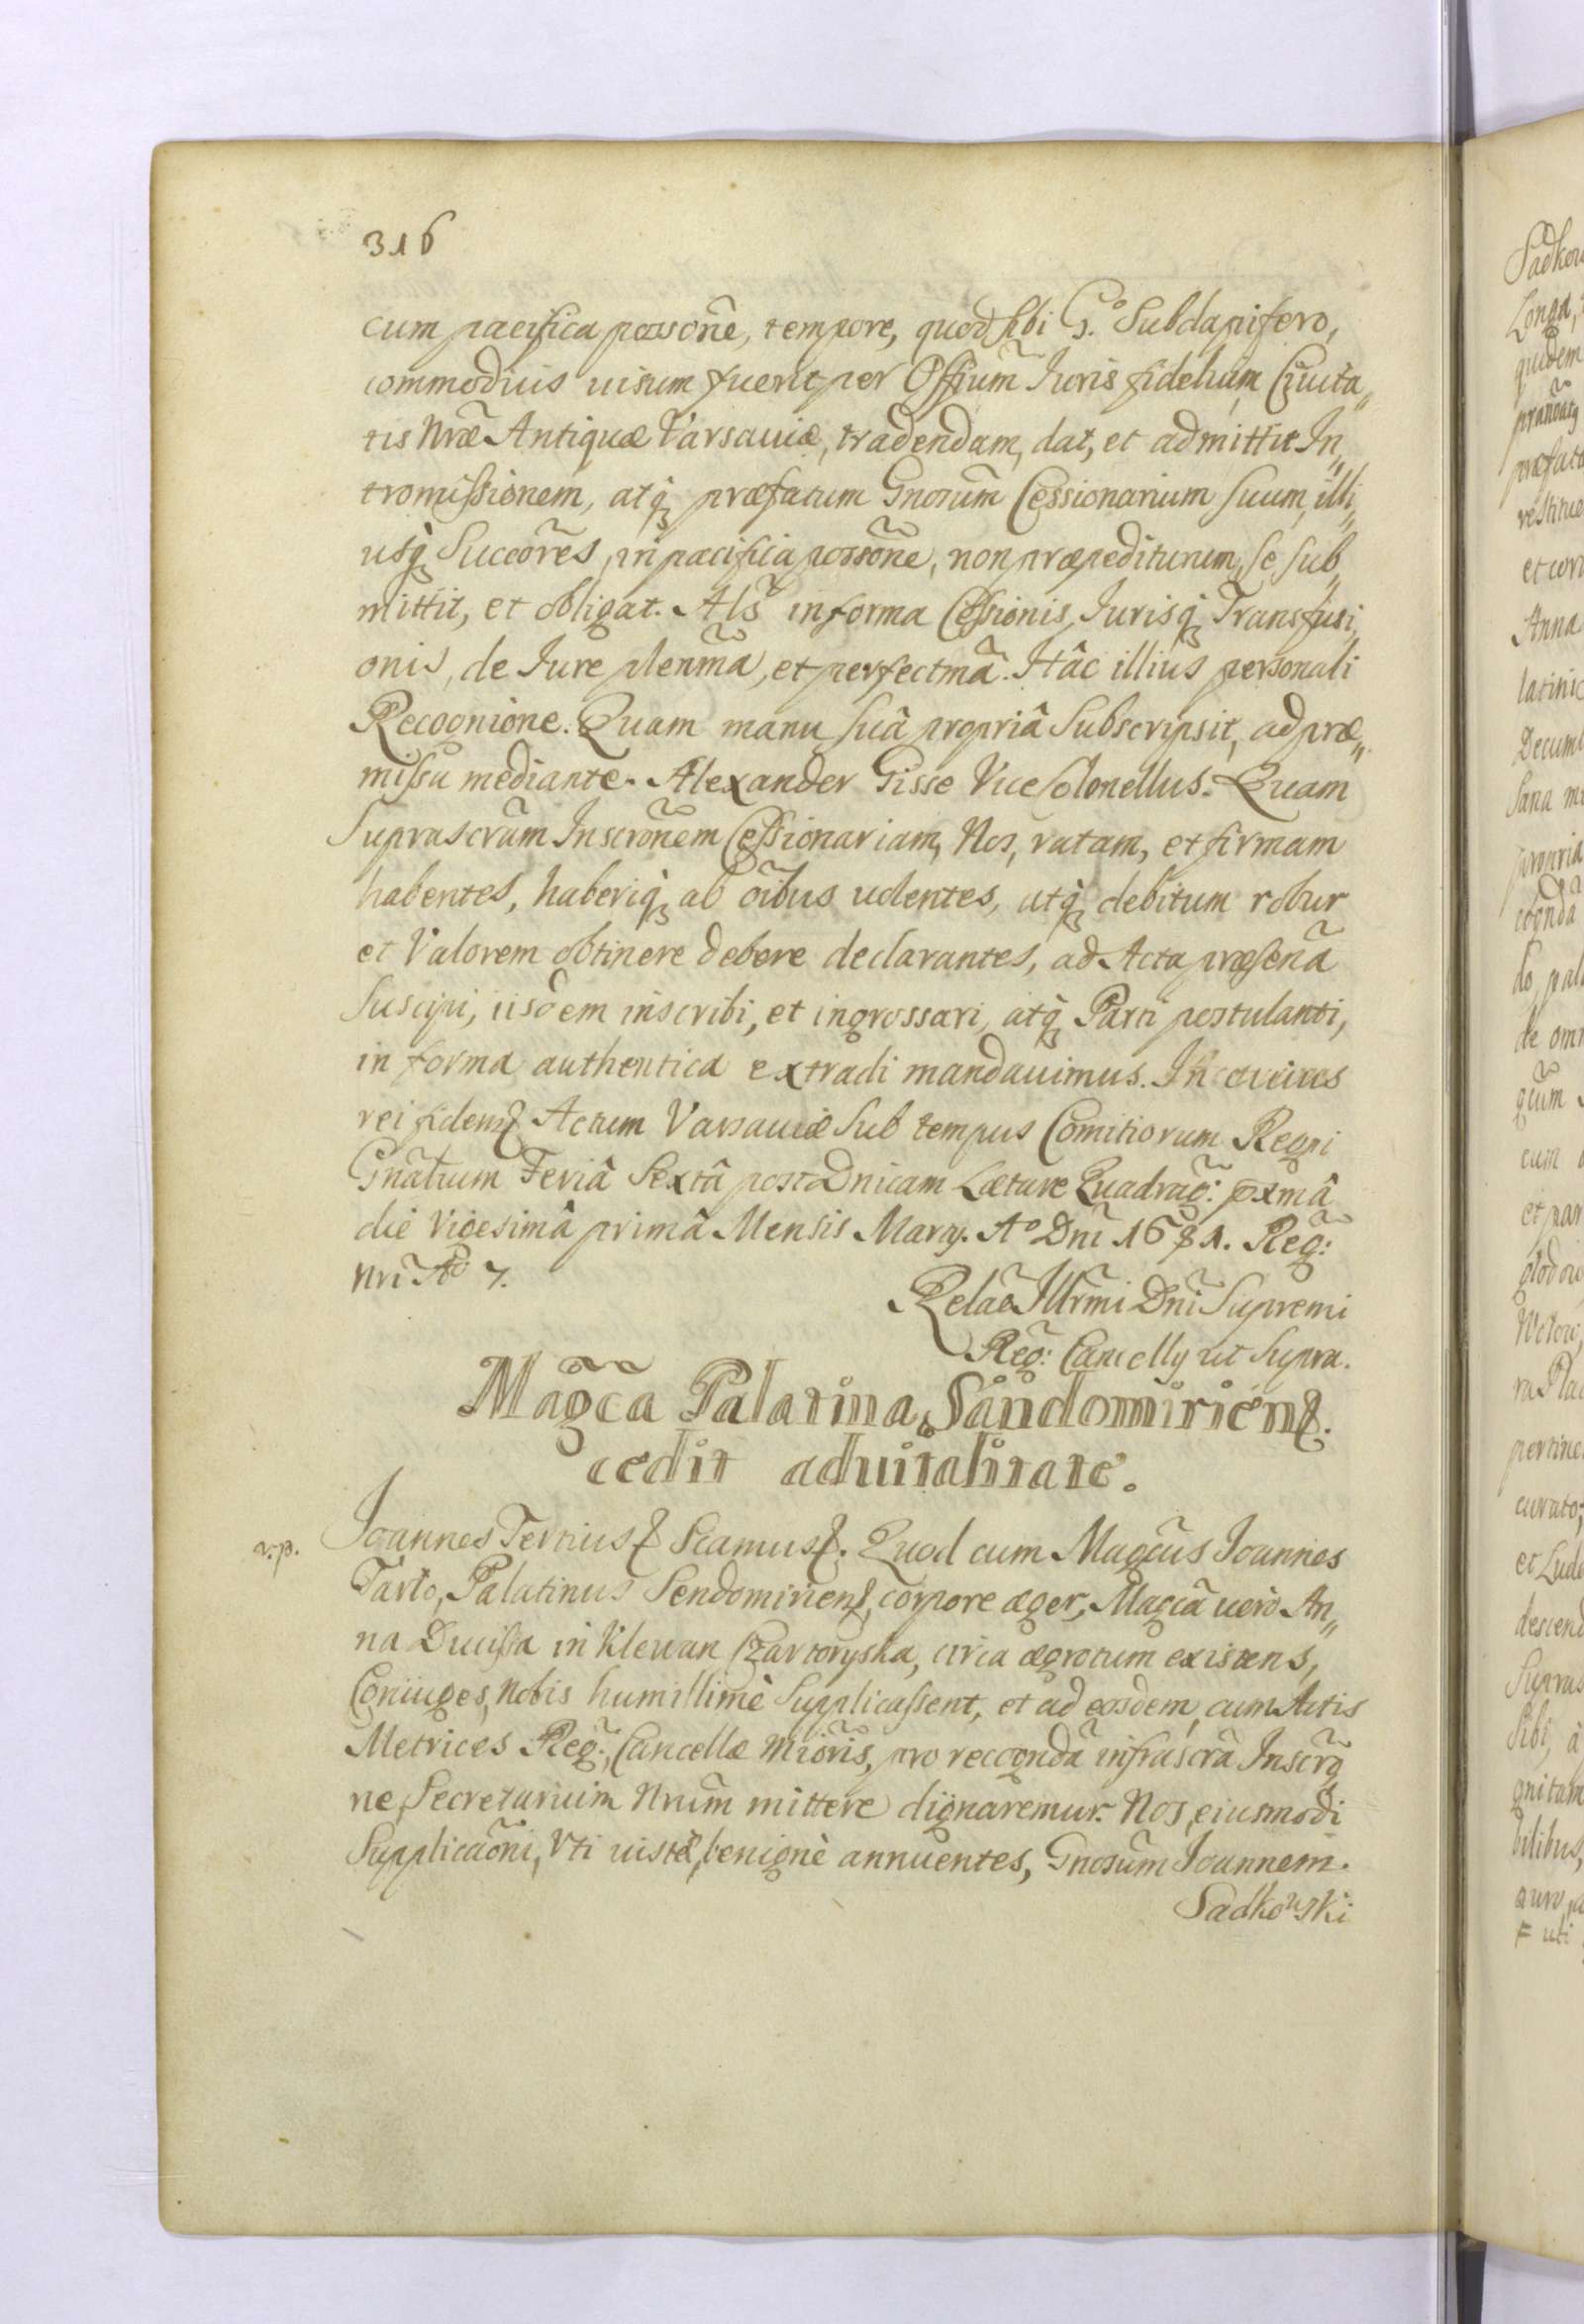 316
cum pacifica possone, tempore, quod sibi G.º Subdapifero,
commodius uisum fuerit, per Offium Iuris fidelium Ciuita„
tis Nræ Antiquæ Varsauiæ, tradendam, dat, et admittit In„
tromissionem, atq præfatum Gnosum Cessionarium suum, illi„
usq Succores, in pacifica possone, non præpediturum, se sub„
mittit, et obligat. Als in forma Cessionis, Jurisq Transfusi„
onis, de Iure plenma, et perfectma. Hâc illius personali
Recognione. Quam manu suâ propriâ Subscripsit, ad præ„
missa mediante. Alexander Gisse Vice Colonellus. Quam
Suprascram Inscronem Cessionariam, Nos, ratam, et firmam
habentes, haberiq ab oibus uolentes, atq debitum robur
et Valorem obtinere debere declarantes, ad Acta præsena
Suscipi, iisdem inscribi, et ingrossari, atq Parti postulanti,
in forma authentica extradi mandauimus. In cuius
rei fidem Actum Varsauiæ Sub tempus Comitiorum Regni
Gnalium Feriâ Sextâ post Dnicam Lætare Quadrag: pxmâ
die vigesimâ primâ Mensis Marty. Aº Dni 1681. Reg:
Nri Aº 7.
Relão Illrmi Dni Supremi
Reg: Cancelly ut Supra.
Magca Palatina Sandomiriens.
cedit aduitalitate.
v.p.
Joannes Tertius Sciamus. Quod cum Magcus Joannes
Tarło, Palatinus Sendomiriens, corpore æger, Magca uerò An„
na Ducissa in Klewan Czartoryska, circa ægrotum existens,
Coniuges, Nobis humillimè Supplicassent, et ad eosdem, cum Actis
Metrices Reg: Cancellæ Mioris, pro recognda infrascra Inscro
ne, Secretarium Nrum mittere dignaremur. Nos, eiusmodi
Supplicaoni, Vti iustæ, benignè annuentes, Gnosum Joannem
Sadkowski